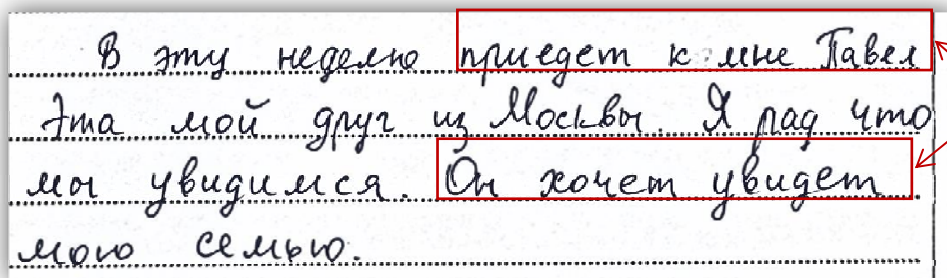 В эту неделю приедет к мне Павел
Эта мой друг из Москвы. Я рад что
мы увидимся. Он хочет увидет
мою семью.